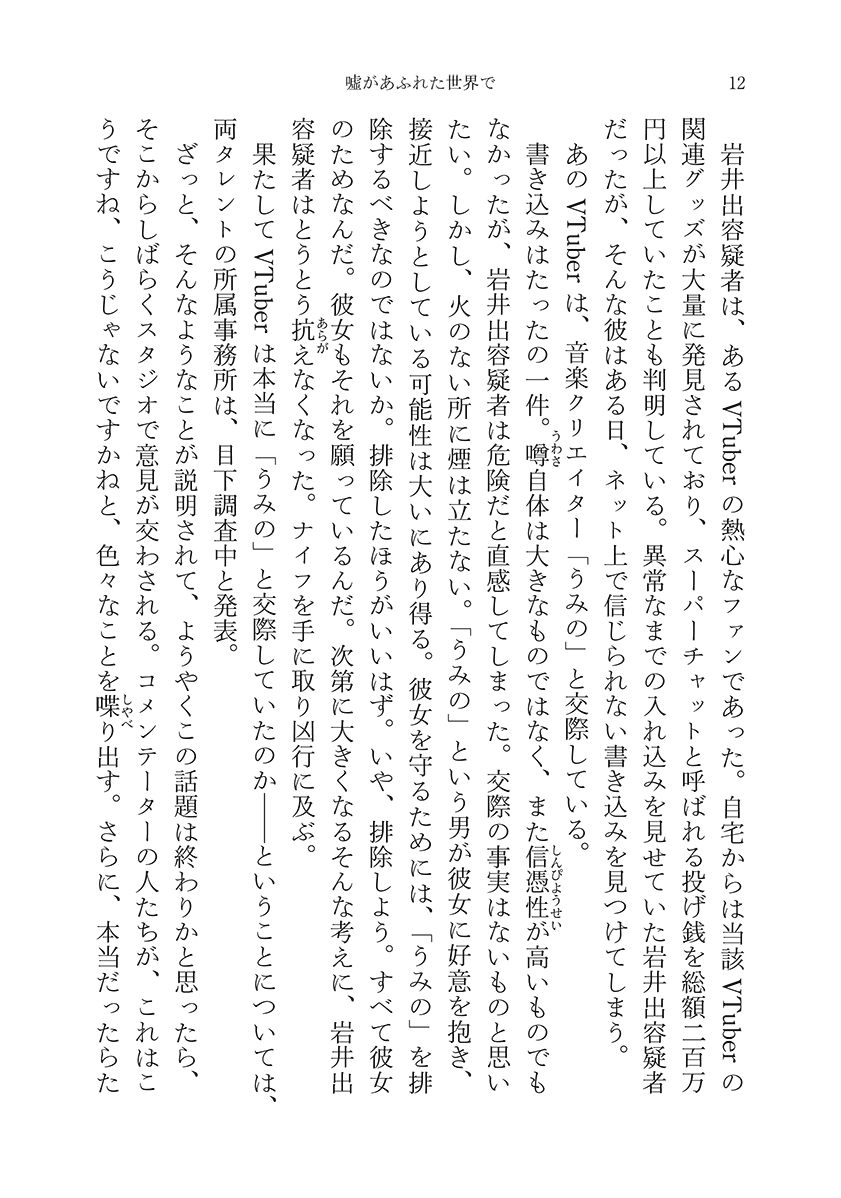 嘘があふれた世界で
12
岩井出容疑者は、あるVTuberの熱心なファンであった。自宅からは当該VTuberの
関連グッズが大量に発見されており、スーパーチャットと呼ばれる投げ銭を総額二百万
円以上していたことも判明している。異常なまでの入れ込みを見せていた岩井出容疑者
だったが、そんな彼はある日、ネット上で信じられない書き込みを見つけてしまう。
あのVTuberは、音楽クリエイター「うみの」と交際している。
書き込みはたったの一件。噂うわさ自体は大きなものではなく、また信憑性しんぴようせいが高いものでも
なかったが、岩井出容疑者は危険だと直感してしまった。交際の事実はないものと思い
たい。しかし、火のない所に煙は立たない。「うみの」という男が彼女に好意を抱き、
接近しようとしている可能性は大いにあり得る。彼女を守るためには、「うみの」を排
除するべきなのではないか。排除したほうがいいはず。いや、排除しよう。すべて彼女
のためなんだ。彼女もそれを願っているんだ。次第に大きくなるそんな考えに、岩井出
容疑者はとうとう抗あらがえなくなった。ナイフを手に取り凶行に及ぶ。
果たしてVTuberは本当に「うみの」と交際していたのか――ということについては、
両タレントの所属事務所は、目下調査中と発表。
ざっと、そんなようなことが説明されて、ようやくこの話題は終わりかと思ったら、
そこからしばらくスタジオで意見が交わされる。コメンテーターの人たちが、これはこ
うですね、こうじゃないですかねと、色々なことを喋しやべり出す。さらに、本当だったらた